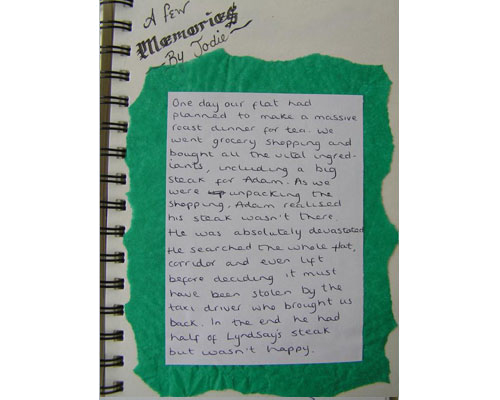 A few
Memories
By Jodie
One day our flat had
planned to make a massive
roast dinner for tea. We
went grocery shopping and
bought all the vital ingred-
iants, including a big
steak for Adam. As we
were unpacking the
shopping, Adam realised
his steak wasn't there.
He was absolutely devastated.
He searched the whole flat,
corridor and even lift
before deciding it must
have been stolen by the
taxi driver who brought us
back. In the end he had
half of Lyndsay's steak
but wasn't happy.